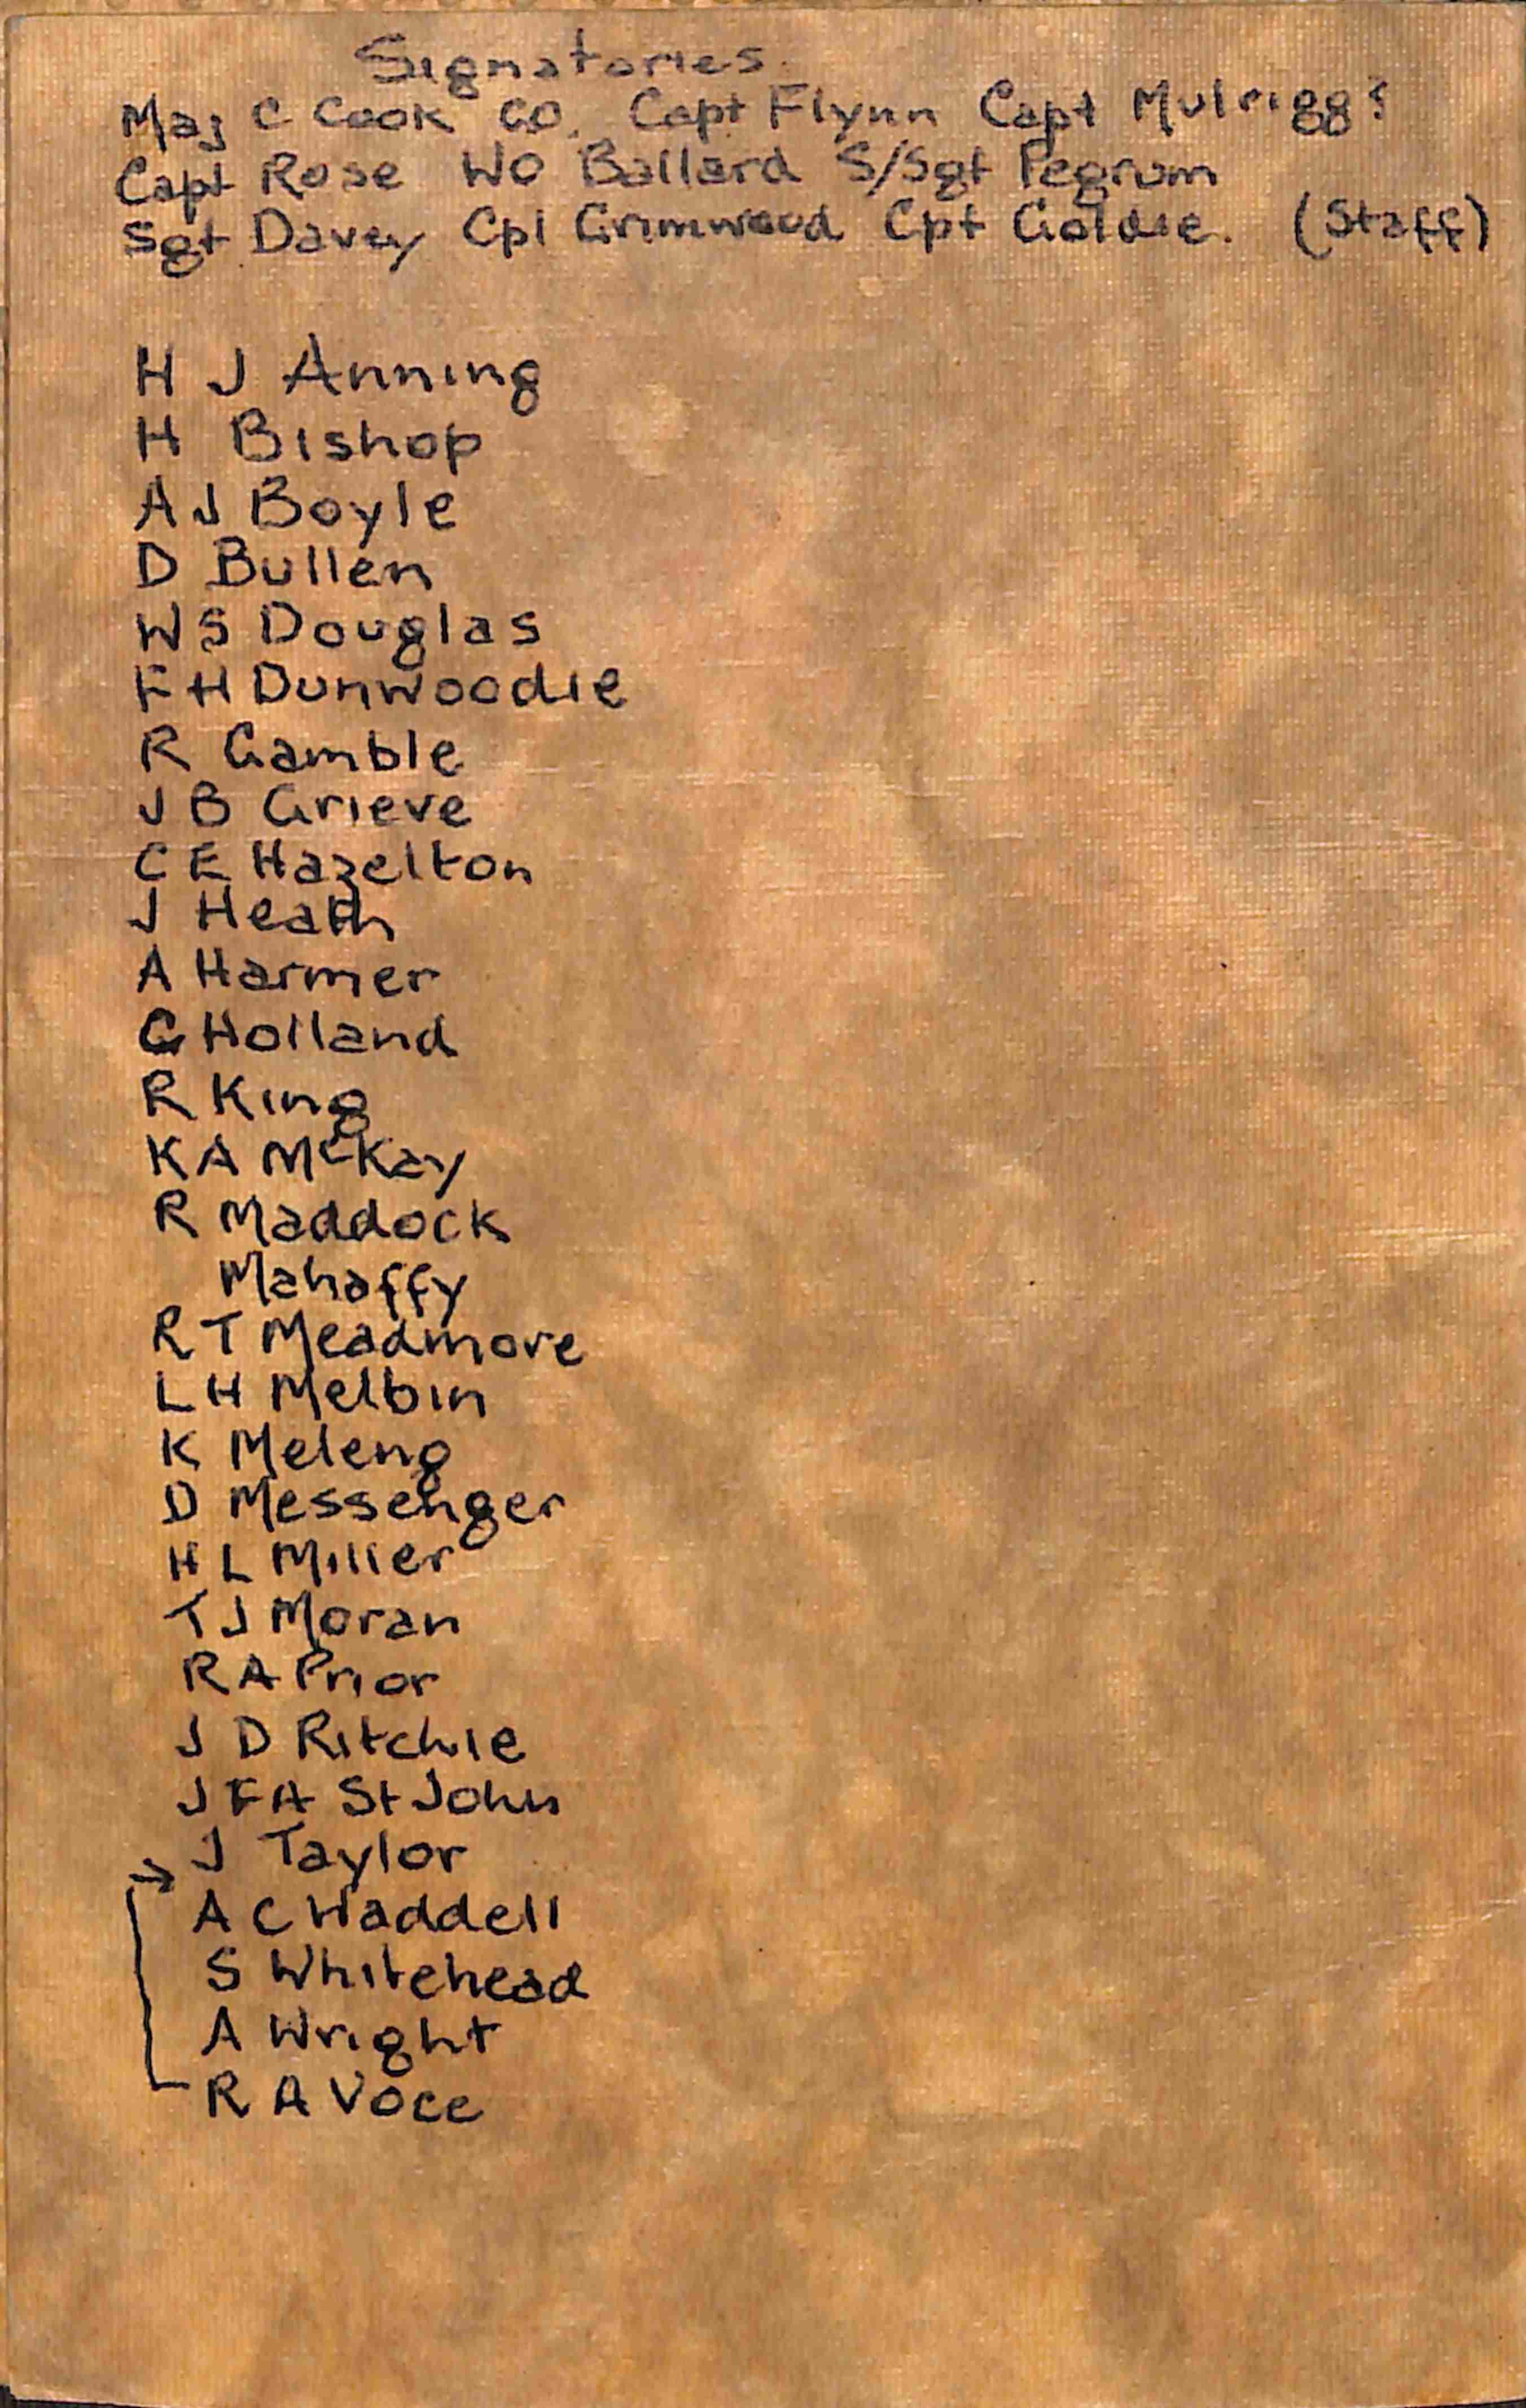 Signatories.
Maj C Cook CO. Capt Flynn Capt Mulrigg?
Capt Rose WO Ballard S/Sgt Pegrum
Sgt Davey Cpl Grimwood Cpt Goldie. (Staff)
H J Anning
H Bishop
A J Boyle
D Bullen
W S Douglas
F H Dunwoodie
R Gamble
J B Grieve
C E Hazelton
J Heath
A Harmer
G Holland
R King
K A McKay
R Maddock
Mahaffy
R T Meadmore
L H Melbin
K Meleng
D Messenger
H L Miller
T J Moran
R A Prior
J D Ritchie
J F A St John
→ J Taylor
A C Waddell
S Whitehead
A Wright
R A Voce